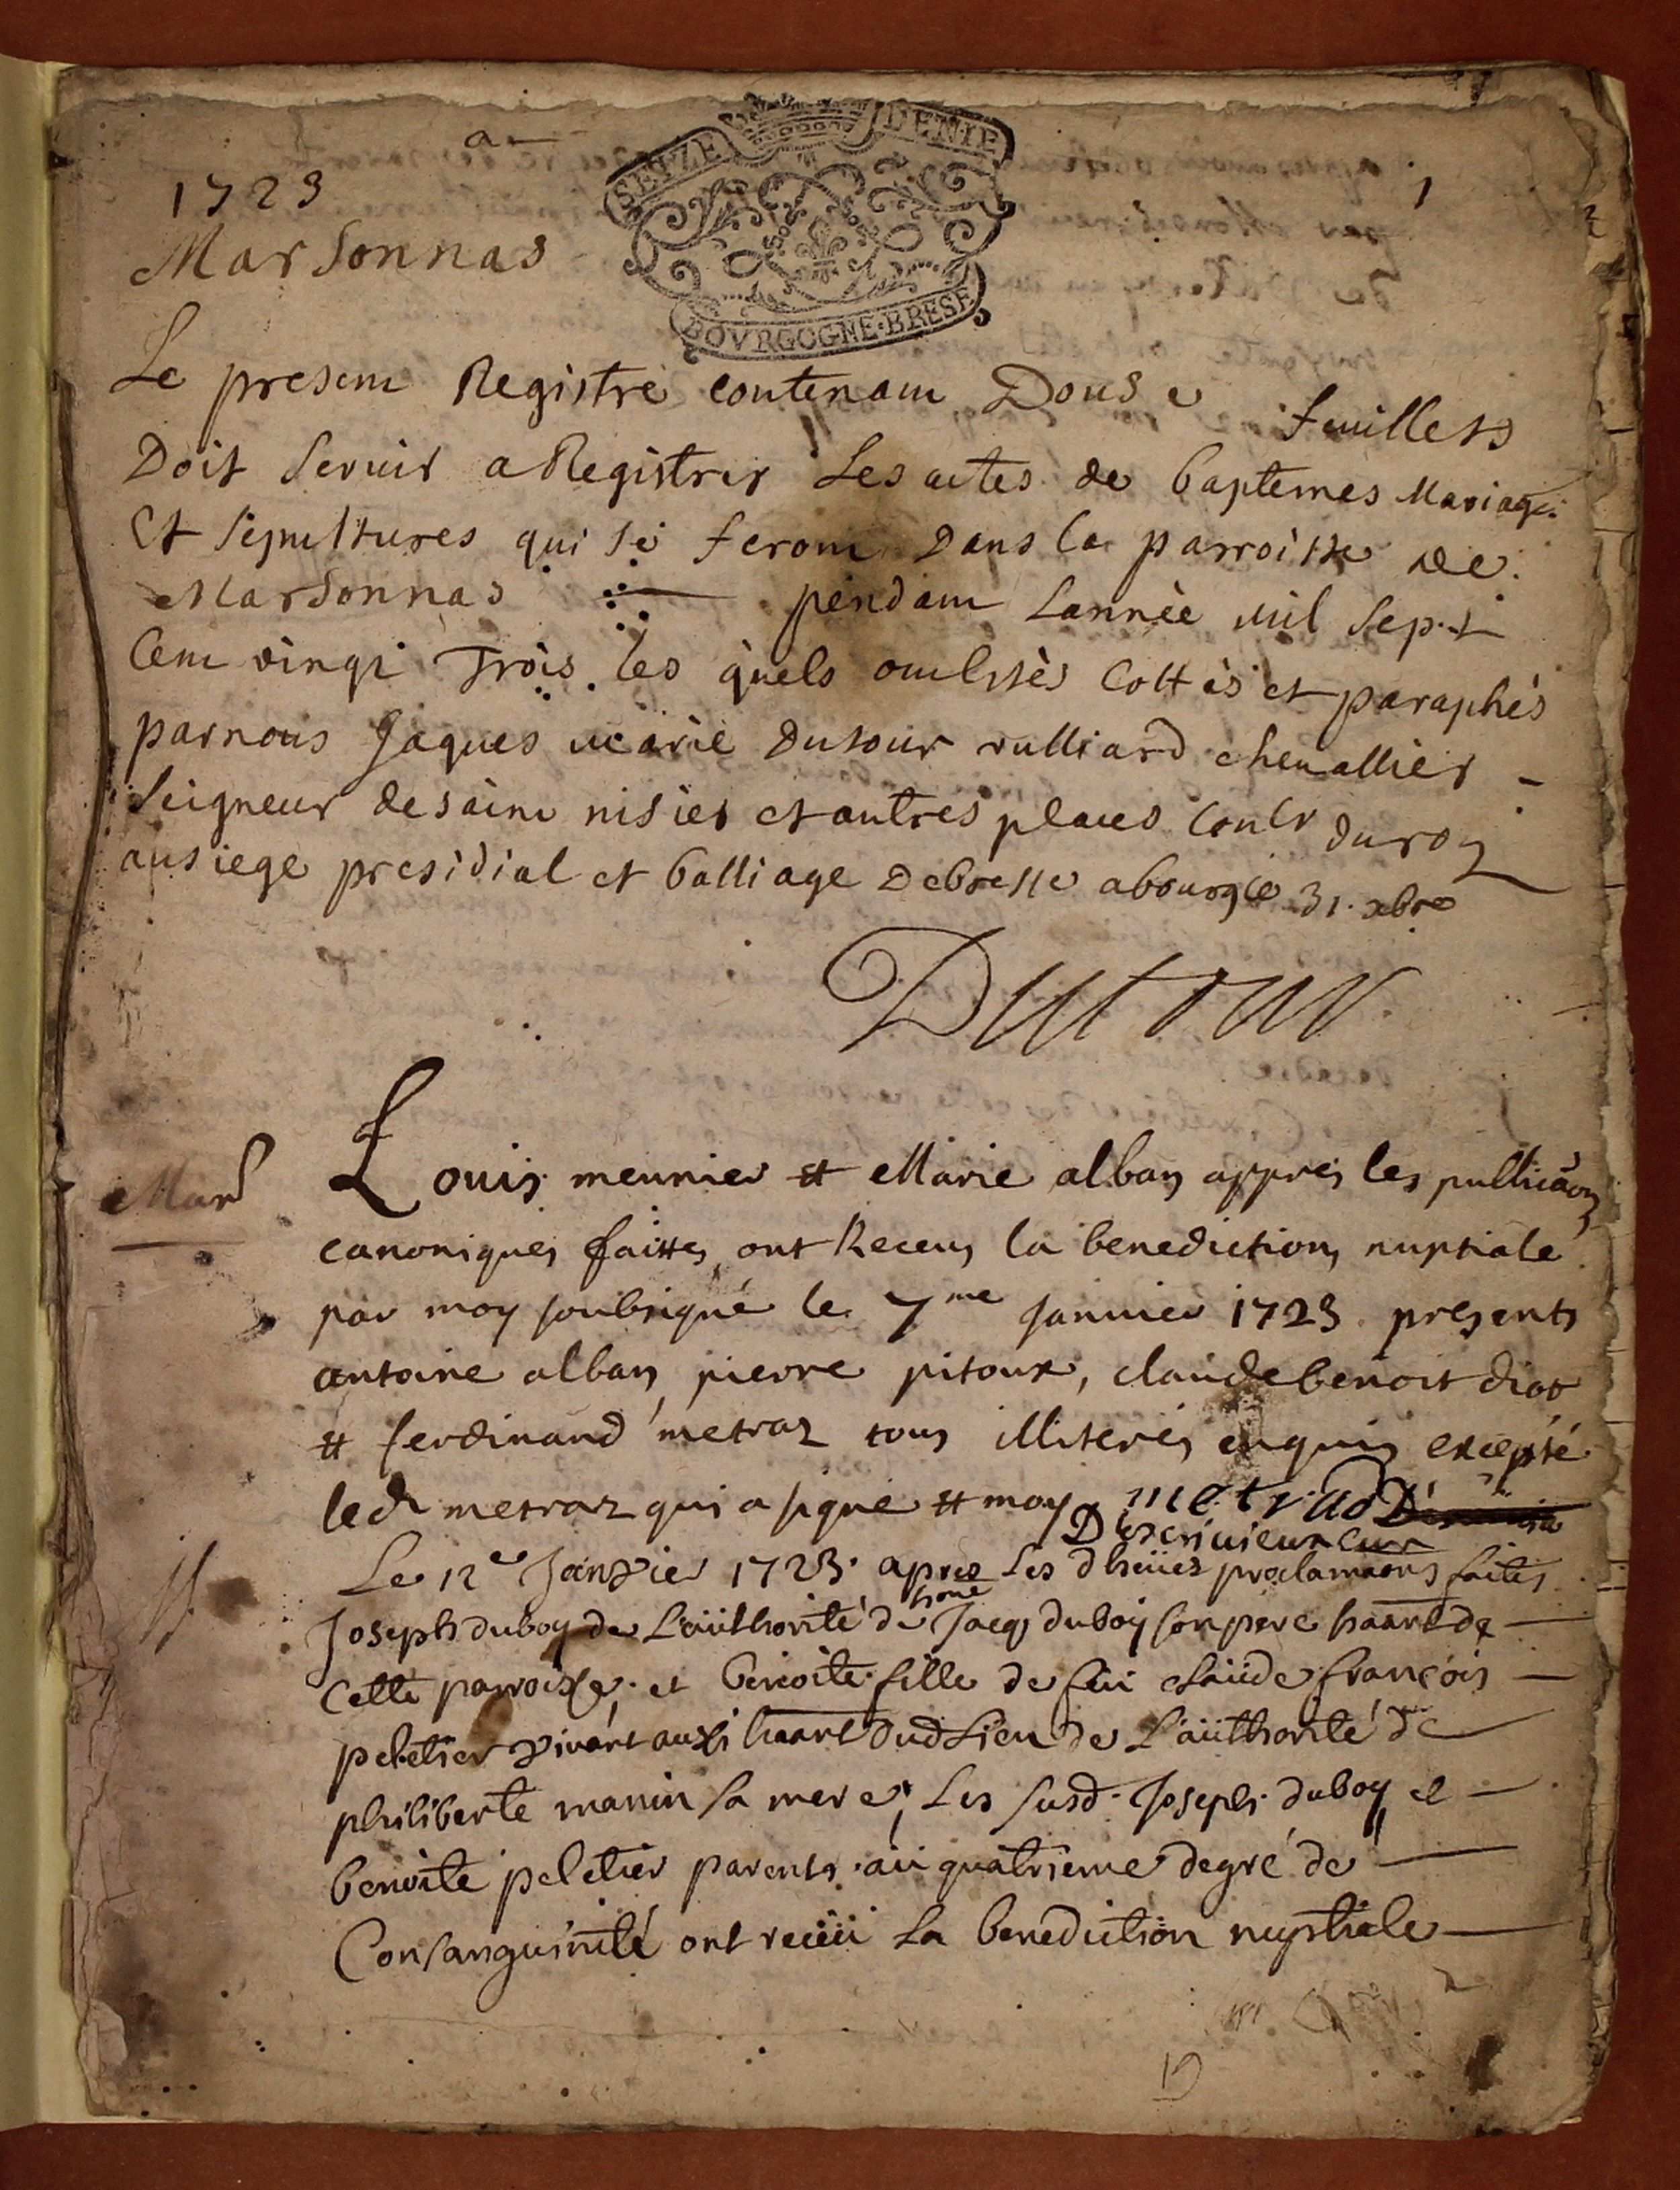 a
1
1723
SEIZE DENIE
Marsonnas
BOVRGOGNE·BRESE
Le presem Registre contenam Douse feuillets
Doit servir a Registrer Les actes de baptemes Mariages
Et sepultures qui se ferom Dans la parroisse de
Marsonnas pendam Lannée mil sept
Cem vingt Trois les quels om estés Cottés et paraphés
par nous Jaques marie Dutour vulliard chevallier
Seigneur de saim nisier et autres places Conlr du roy
au siege presidial et balliage De bresse a bourg le 31. xbre
Dutour
Mar
Louis meunier et Marie alban appres les publicaons
canoniques faittes ont Receus la benediction nuptiale
par moy soubsigné le 7me Janvier 1723 presents
antoine alban, pierre pitoux, claude benoit diot
et ferdinand metraz tous illiterés enquis excepté
led metraz qui a signé et moy metrad
Le 12e Janvier 1723. apres Les proclamaons faites
Joseph duboy de L'authorité de hone Jacq duboy son pere haant de
Cette parroisse. et benoite fille de feu claude françois
peletier vivant aussi haant dud Lieu de L'authorité de
philiberte manin sa mere, Les susd. Joseph duboy et
benoite peletier parents au quatrieme degré de
Consanguinité ont reçeu La benediction nuptiale